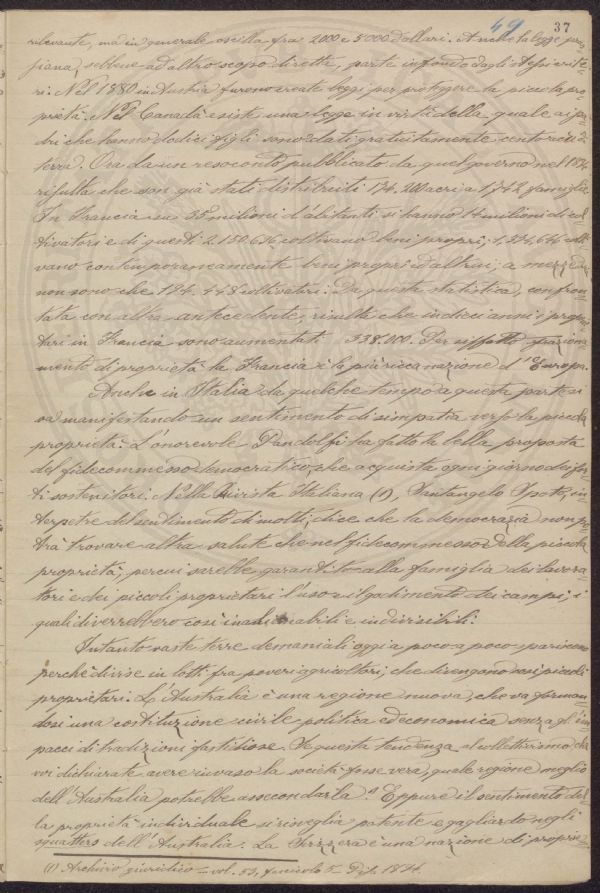 49 37
rilevante, ma in generale oscilla fra 2000 e 5000 dollari. Anche la legge prus=
siana, sebbene ad altro scopo diretta, parte in fondo dagli stessi crite=
ri. Nel 1880 in Austria furono create leggi per proteggere la piccola pro=
prietà. Nel Canadà esiste una legge in virtù della quale ai pa=
dri che hanno dodici figli sono dati gratuitamente cento acri di
terra. Ora da un resoconto pubblicato da quel governo nel 1894
risulta che son già stati distribuiti 174.200 acri a 1,742 famiglie.
In Francia su 35 milioni d'abitanti si hanno 14 milioni di col=
tivatori e di questi 2.150.696 coltivano beni proprî; 1,374,646 colti=
vano contemporaneamente beni proprî ed altrui; a mezzadri
non sono che 194.448 coltivatori. Da questa statistica, confron=
tata con altra antecedente, risulta che in dieci anni i proprie=
tari in Francia sono aumentati 338.000. Per siffatto fraziona=
mento di proprietà la Francia è la più ricca nazione d'Europa.
Anche in Italia da qualche tempo a questa parte si
va manifestando un sentimento di simpatia verso la piccola
proprietà. L'onorevole Pandolfi ha fatto la bella proposta
del fidecommesso democratico, che acquista ogni giorno dei for=
ti sostenitori. Nella Rivista Italiana (1), Santangelo Spoto, in=
terpetre del sentimento di molti, dice che la democrazia non po=
trà trovare altra salute che nel fidecommesso della piccola
proprietà, per cui sarebbe garantito alla famiglia dei lavora=
tori e dei piccoli proprietari l'uso e il godimento dei campi, i
quali diverrebbero così inalienabili e indivisibili.
Intanto vaste terre demaniali oggi a poco a poco spariscono
perchè divise in lotti fra poveri agricoltori, che divengono così piccoli
proprietari. L'Australia è una regione nuova, che va forman=
dosi una costituzione civile politica ed economica senza gl'im=
pacci di tradizioni fastidiose. Se questa tendenza al collettivismo da
voi dichiarata avere invaso la società fosse vera, quale regione meglio
dell'Australia potrebbe assecondarla? Eppure il sentimento del=
la proprietà individuale si risveglia potente e gagliardo negli
squatters dell'Australia. La Svizzera è una nazione di proprie=
(1) Archivio giuridico = vol. 53, fascicolo 5. Pisa 1894.